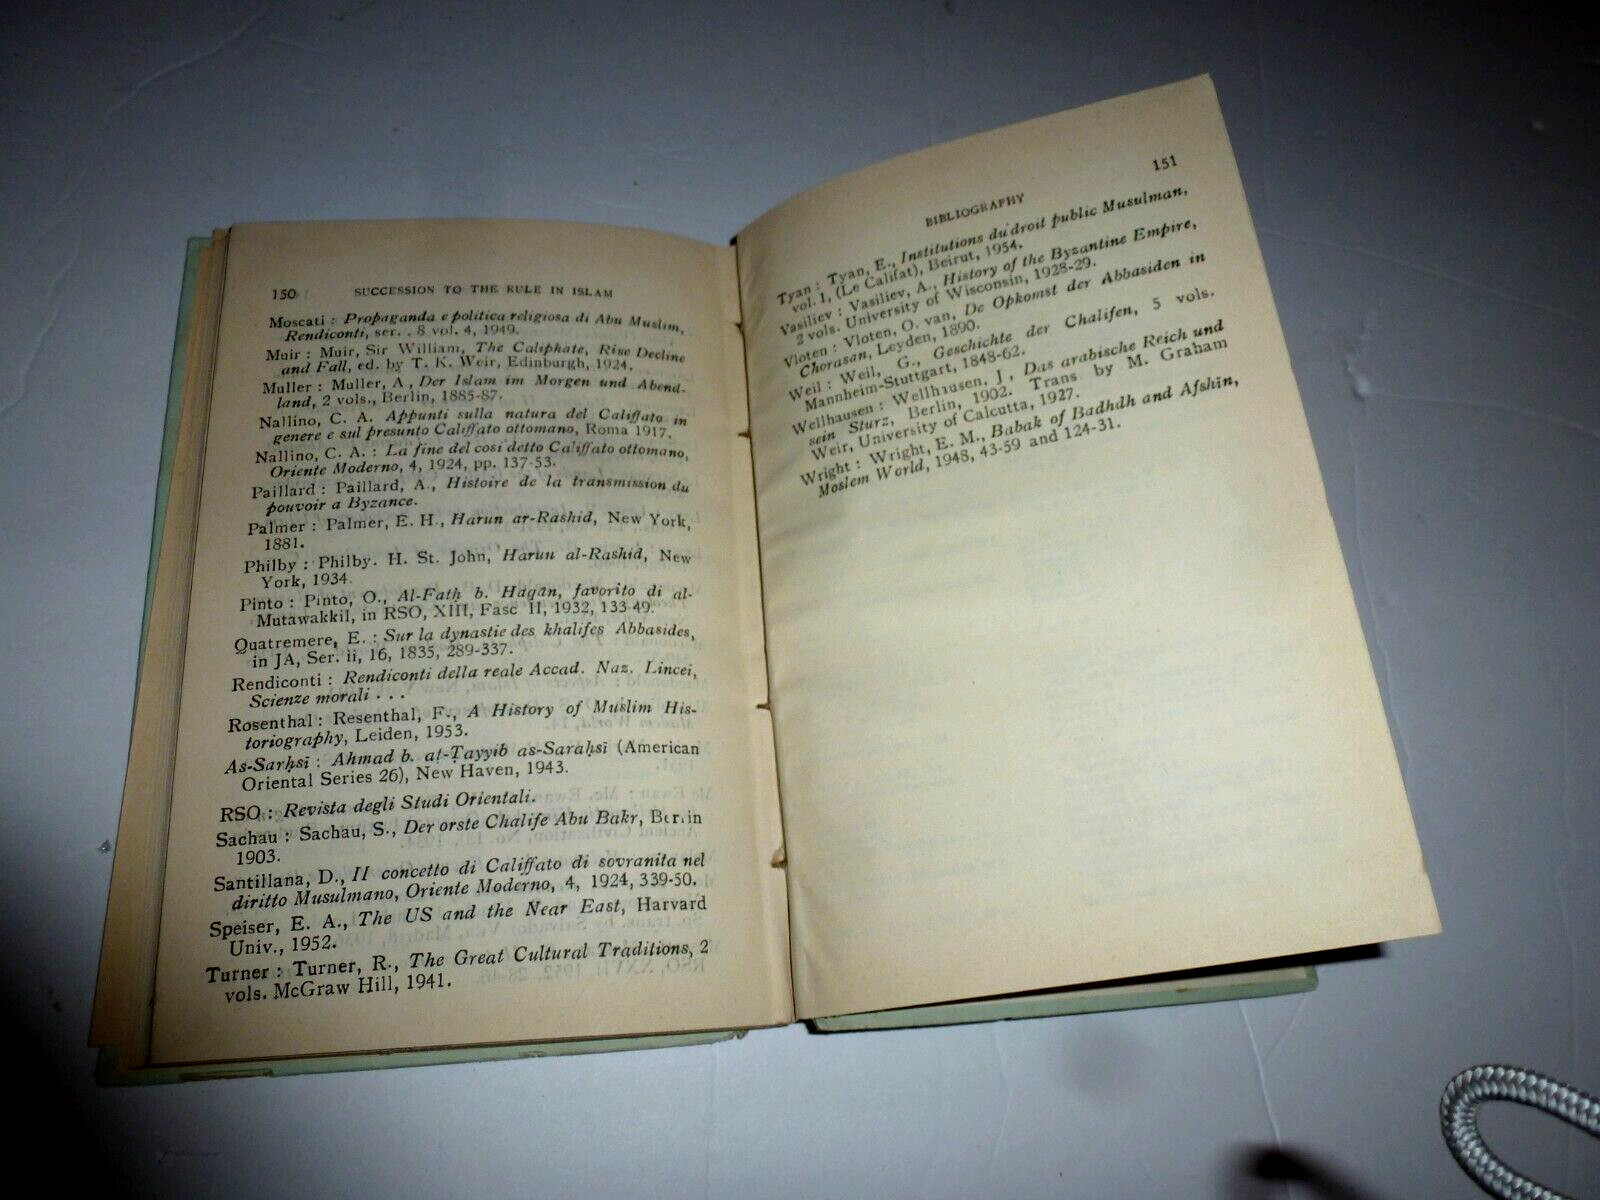 150 SUCCESSION TO THE RULE IN ISLAM
Moscati : Propaganda e politica religiosa di Abu Muslim,
Rendiconti, ser. . 8 vol. 4, 1949.
Muir : Muir, Sir William, The Caliphate, Rise Decline
and Fall, ed. by T. K. Weir, Edinburgh, 1924.
Muller : Muller, A , Der Islam im Morgen und Abend-
land, 2 vols., Berlin, 1885-87.
Nallino, C. A. Appunti sulla natura del Califfato in
genere e sul presunto Califfato ottomano, Roma 1917.
Nallino, C. A. : La fine del cosi detto Califfato ottomano,
Oriente Moderno, 4, 1924, pp. 137-53.
Paillard : Paillard, A., Histoire de la transmission du
pouvoir a Byzance.
Palmer : Palmer, E. H., Harun ar-Rashid, New York,
1881.
Philby : Philby. H. St. John, Harun al-Rashid, New
York, 1934.
Pinto : Pinto, O., Al-Fatḥ b. Ḥaqān, favorito di al-
Mutawakkil, in RSO, XIII, Fasc II, 1932, 133-49.
Quatremere, E. : Sur la dynastie des khalifes Abbasides,
in JA, Ser. ii, 16, 1835, 289-337.
Rendiconti : Rendiconti della reale Accad. Naz. Lincei,
Scienze morali . . .
Rosenthal : Resenthal, F., A History of Muslim His-
toriography, Leiden, 1953.
As-Sarḥsī : Ahmad b. aṭ-Ṭayyib as-Saraḥsī (American
Oriental Series 26), New Haven, 1943.
RSO : Revista degli Studi Orientali.
Sachau : Sachau, S., Der orste Chalife Abu Bakr, Berlin
1903.
Santillana, D., II concetto di Califfato di sovranita nel
diritto Musulmano, Oriente Moderno, 4, 1924, 339-50.
Speiser, E. A., The US and the Near East, Harvard
Univ., 1952.
Turner : Turner, R., The Great Cultural Traditions, 2
vols. McGraw Hill, 1941.
BIBLIOGRAPHY 151
Tyan : Tyan, E., Institutions du droit public Musulman,
vol. 1, (Le Califat), Beirut, 1954.
Vasiliev : Vasiliev, A., History of the Byzantine Empire,
2 vols. University of Wisconsin, 1928-29.
Vloten : Vloten, O. van, De Opkomst der Abbasiden in
Chorasan, Leyden, 1890.
Weil : Weil, G., Geschichte der Chalifen, 5 vols.
Mannheim-Stuttgart, 1848-62.
Wellhausen : Wellhausen, J , Das arabische Reich und
sein Sturz, Berlin, 1902. Trans by M. Graham
Weir, University of Calcutta, 1927.
Wright : Wright, E. M., Babak of Badhdh and Afshīn,
Moslem World, 1948, 43-59 and 124-31.